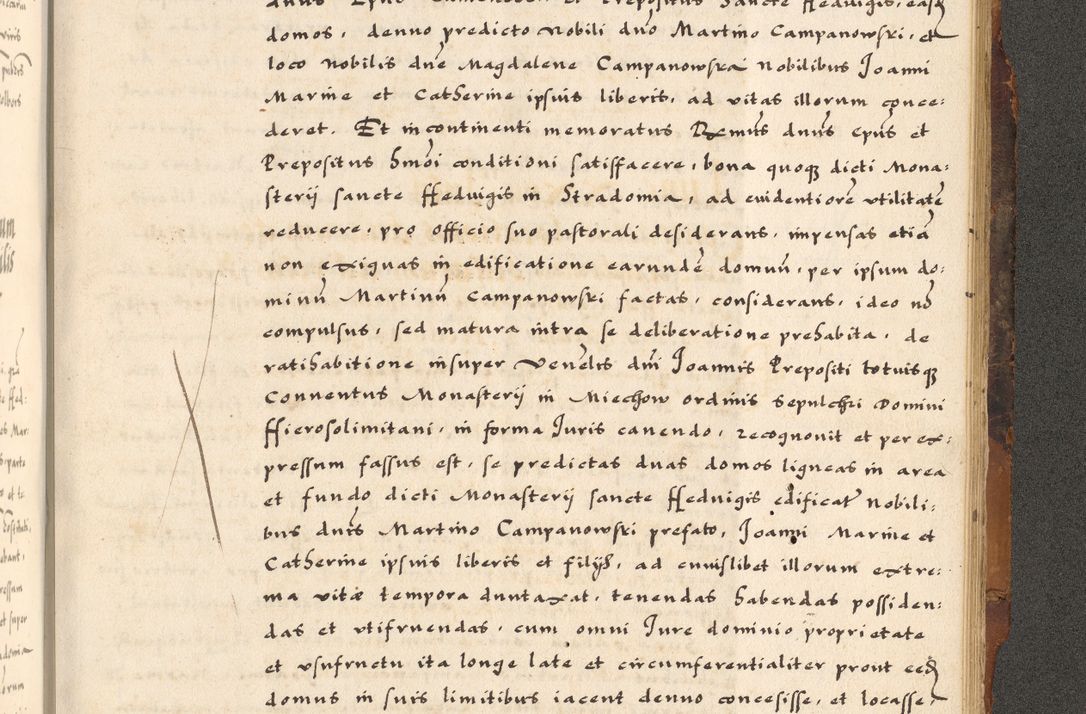 domos, denuo predicto Nobili dno Martino Campanowski, et
loco Nobilis dne Magdalene Campanowska Nobilibus Joanni
Marine et Catherine ipsius liberis, ad vitas illorum conce:
deret. Et in continenti memoratus Rxmus dnus Epus et
Prepositus hmoi conditioni satisfacere, bona quoq dicti Mona:
sterij sancte Hedvigis in Stradomia, ad evidentiore utilitate
reducere, pro officio suo pastorali desiderans, impensas etia
non exiguas in edificatione earunde domuu, per ipsum do:
minu Martinu Campanowski factas, considerans, ideo no
compulsus, sed matura intra se deliberatione prehabita, de
ratihabitione insuper Venelis dni Joannis Prepositi totiusq
Conventus Monasterij in Miechow ordinis Sepulchri Domini
Hierosolimitani, in forma Juris cavendo, recognovit et per ex:
pressum fassus est, se predictas duas domos ligneas in area
et fundo dicti Monasterij sancte Hedvigis edificat Nobili:
bus dnis Martino Campanowski prefato, Joanni Marine et
Catherine ipsius liberis et filijs, ad cuiuslibet illorum extre:
ma vitæ tempora duntaxat, tenendas habendas possiden:
das et utifruendas, cum omni Jure dominio proprietate
et usufructu ita longe late et circumferentialiter prout eedz
domus in suis limitibus iacent denuo concesisse, et locasse,